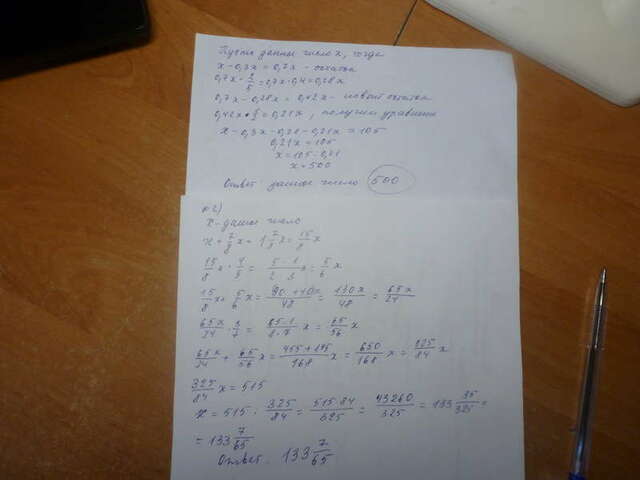 Пусть данное число x, тогда
x - 0,3x = 0,7x - остаток
0,7x · 2/5 = 0,7x · 0,4 = 0,28x
0,7x - 0,28x = 0,42x - новый остаток
0,42x · 1/2 = 0,21x, получим уравнение
x - 0,3x - 0,28 - 0,21x = 105
0,21x = 105
x = 105 : 0,21
x = 500
Ответ: данное число 500
№2)
x - данное число
x + 7/8 x = 1 7/8 x = 15/8 x
15/8 x · 4/9 = 5 · 1 / 2 · 3 x = 5/6 x
15/8 x + 5/6 x = 90 + 40x / 48 = 130x / 48 = 65x / 24
65x/24 · 3/7 = 65 · 1 / 8 · 7 x = 65/56 x
65x/24 + 65/56 x = 455 + 195 / 168 x = 650/168 x = 325/84 x
325/84 x = 515
x = 515 : 325/84 = 515 · 84 / 325 = 43260/325 = 133 35/325 =
= 133 7/65
Ответ. 133 7/65